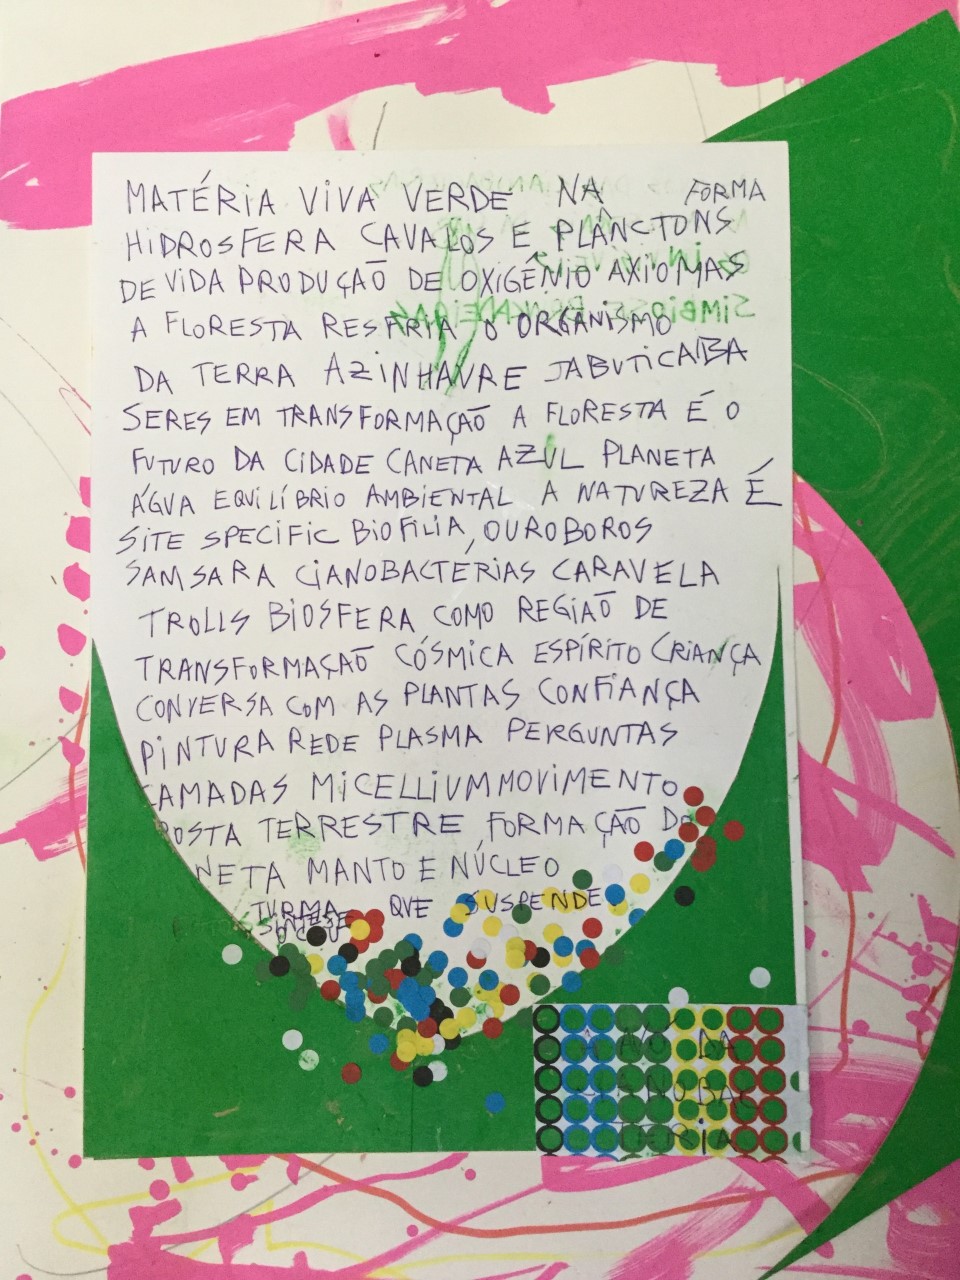 MATÉRIA VIVA VERDE NA FORMA
HIDROSFERA CAVALOS E PLÂNCTONS
DE VIDA PRODUÇÃO DE OXIGÊNIO AXIOMAS
A FLORESTA RESPIRA O ORGANISMO
DA TERRA AZINHAVRE JABUTICABA
SERES EM TRANSFORMAÇÃO A FLORESTA É O
FUTURO DA CIDADE CANETA AZUL PLANETA
ÁGUA EQUILÍBRIO AMBIENTAL A NATUREZA É
SITE SPECIFIC BIOFILIA, OUROBOROS
SAMSARA CIANOBACTÉRIAS CARAVELA
TROLLS BIOSFERA COMO REGIÃO DE
TRANSFORMAÇÃO CÓSMICA ESPÍRITO CRIANÇA
CONVERSA COM AS PLANTAS CONFIANÇA
PINTURA REDE PLASMA PERGUNTAS
CAMADAS MICELLIUM MOVIMENTO
ROSTA TERRESTRE FORMAÇÃO DO
NETA MANTO E NÚCLEO
TURMA QUE SUSPENDE
SIMBIOSE
AVÓ DA
NOBAC
TERIA